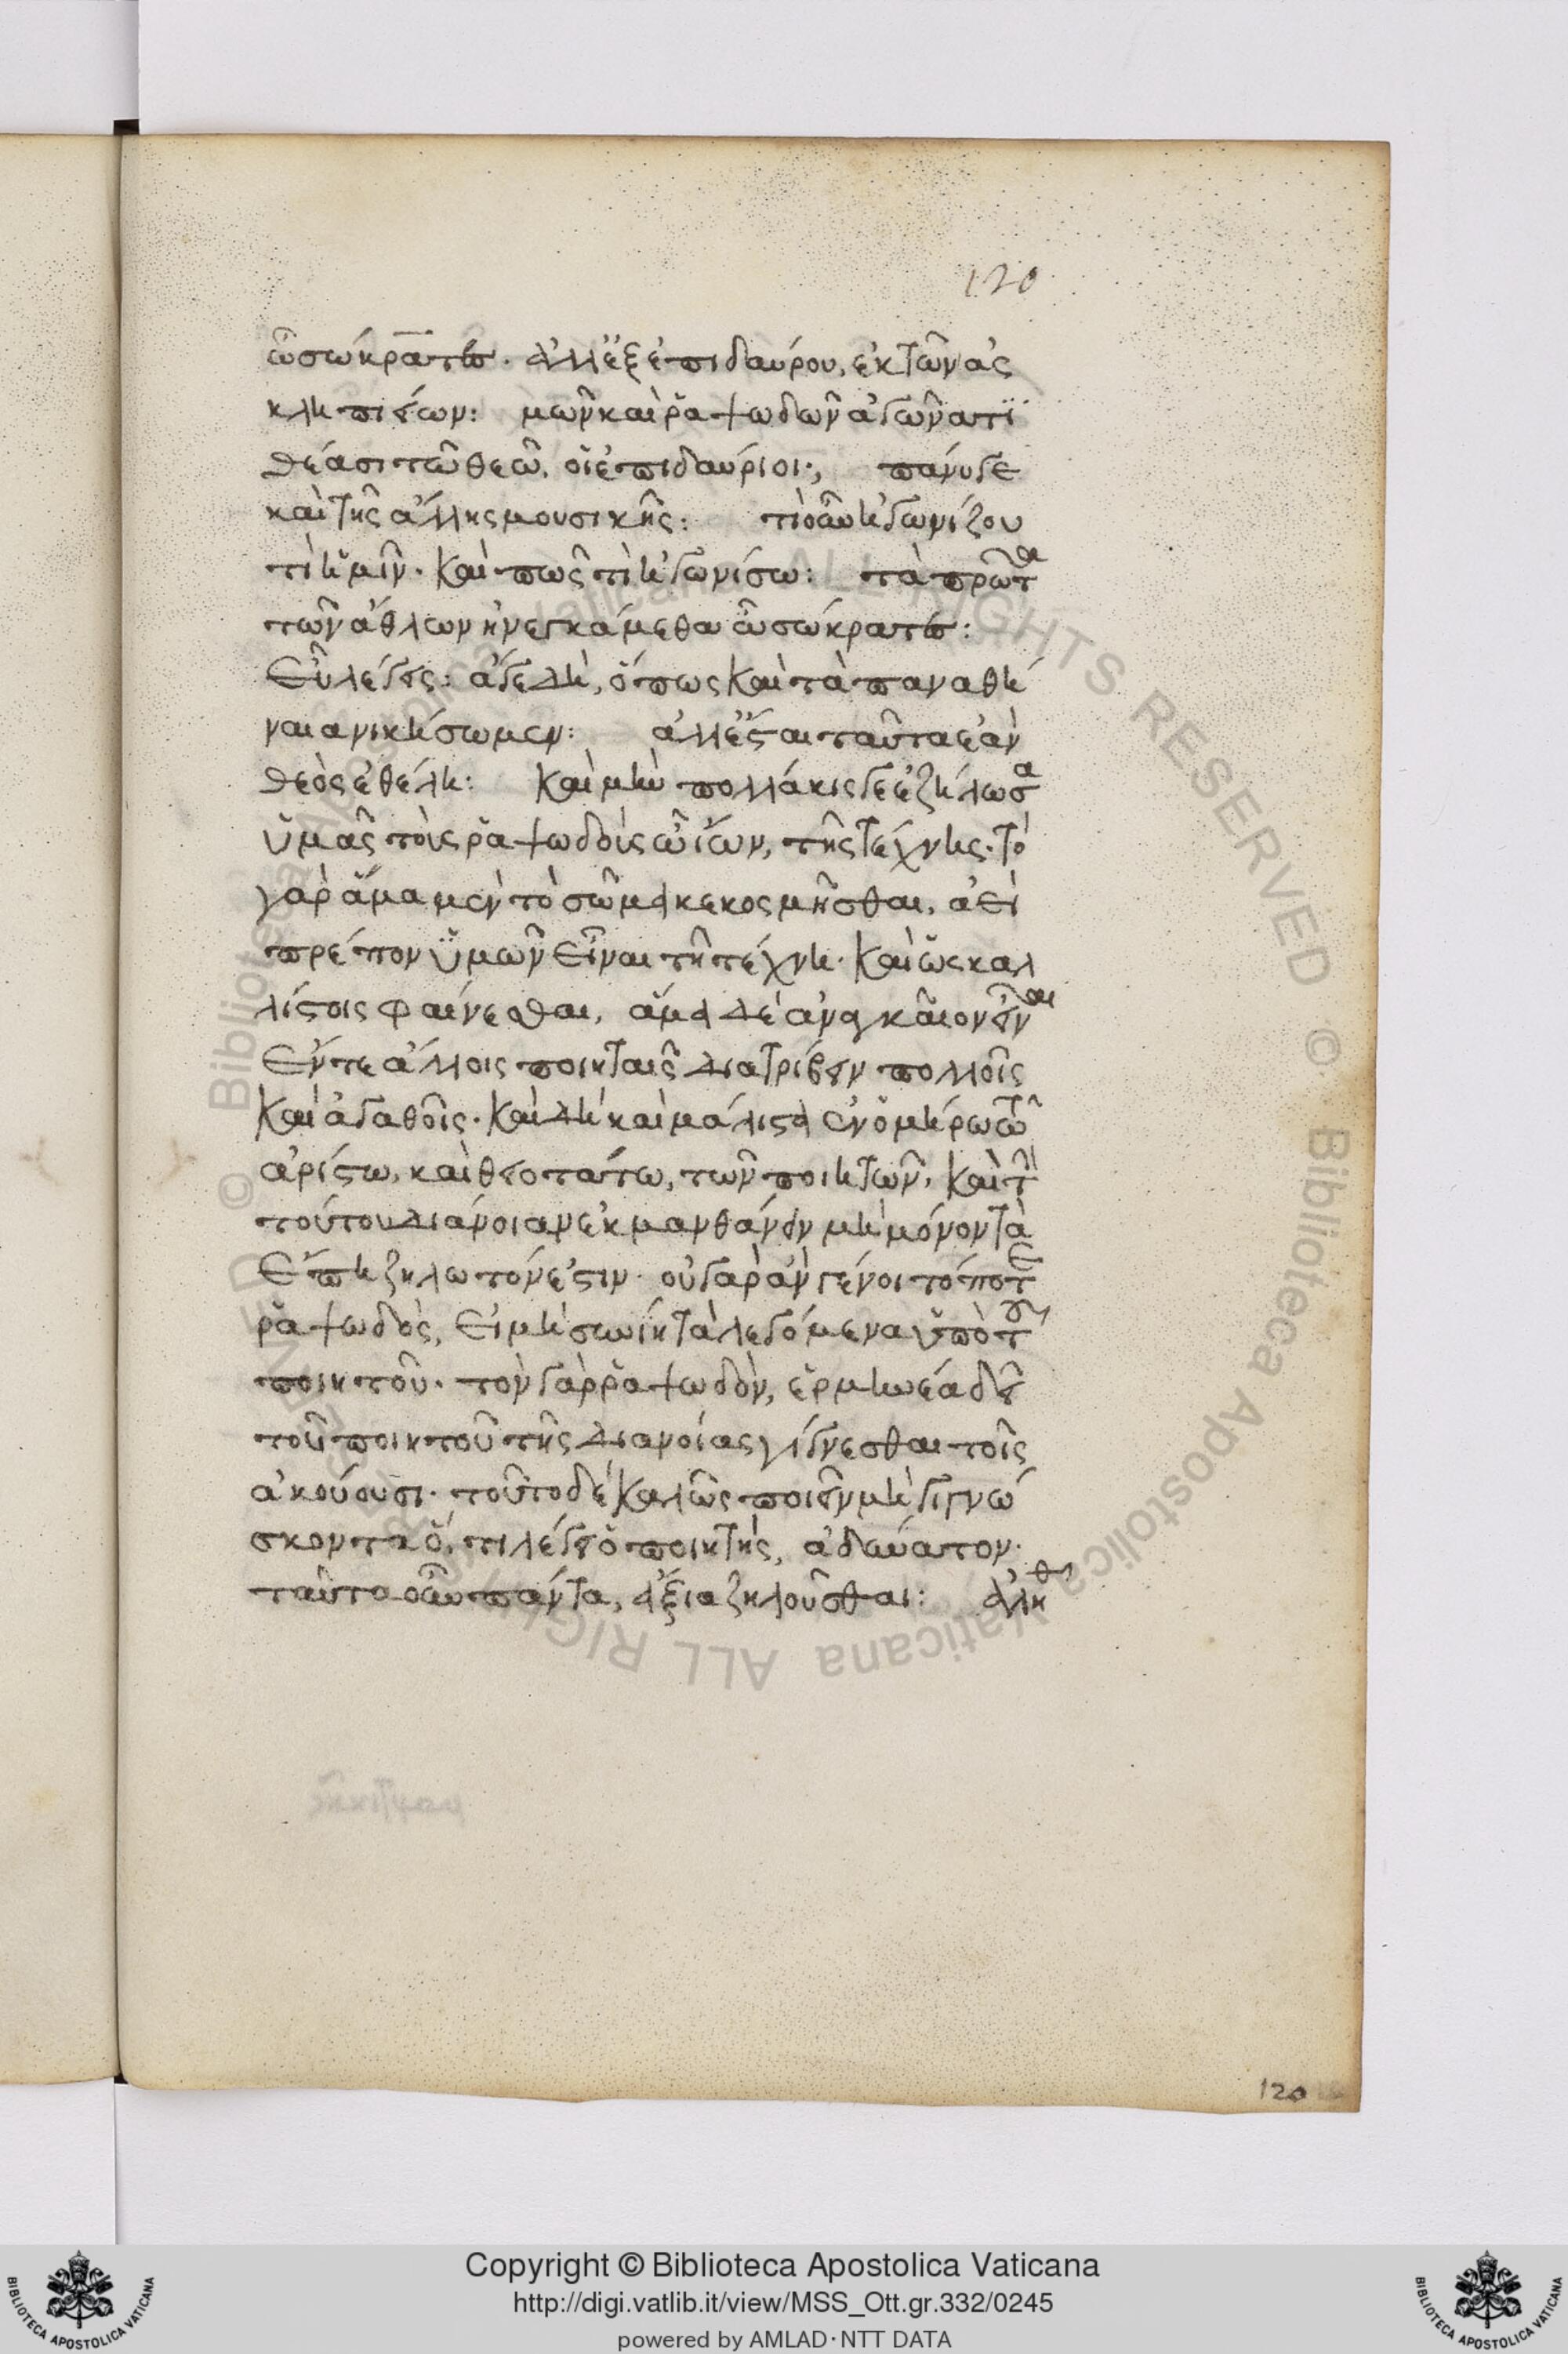 120
ὦ σώκρατες. ἀλλ' ἐξ ἐπιδαύρου, ἐκ τῶν ἀσ
κληπιείων: μῶν καὶ ῥαψωδῶν ἀγῶνα τι
θέασι τῶ θεῶ, οἱ ἐπιδαύριοι; πάνυ γε
καὶ τῆς ἄλλης μουσικῆς: τί οὖν ἠγωνίζου
τὶ ἡμῖν. καὶ πῶς τὶ ἠγωνίσω: τὰ πρῶτα
τῶν ἄθλων ἠνεγκάμεθα ὦ σώκρατες:
εὖ λέγεις: ἄγε δὴ, ὅπως καὶ τὰ παναθή
ναια νικήσωμεν: ἀλλ' ἔσται ταῦτα ἐὰν
θεὸς ἐθέλη: καὶ μὴν πολλάκις γε ἐζήλωσα
ὑμᾶς τοὺς ῥαψωδοὺς ὦ ἴων, τῆς τέχνης. τὸ
γὰρ ἅμα μὲν τὸ σῶμα κεκοσμῆσθαι, ἀεὶ
πρέπον ὑμῶν εἶναι τῆ τέχνη. καὶ ὡς καλ
λίστοις φαίνεσθαι, ἅμα δὲ ἀναγκαῖον εἶναι
ἔν τε ἄλλοις ποιηταῖς διατρίβειν πολλοῖς
καὶ ἀγαθοῖς. καὶ δὴ καὶ μάλιστα ἐν ὁμήρω τῶ
ἀρίστω, καὶ θειοτάτω, τῶν ποιητῶν, καὶ τὴν
τούτου διάνοιαν ἐκμανθάνειν μὴ μόνον τὰ
ἔπη ζηλωτόν ἐστιν. οὐ γὰρ ἂν γένοιτό ποτε
ῥαψωδὸς, εἰ μὴ συνίη τὰ λεγόμενα ὑπὸ τοῦ
ποιητοῦ. τὸν γὰρ ῥαψωδὸν, ἑρμηνέα δεῖ
τοῦ ποιητοῦ τῆς διανοίας γίγνεσθαι τοῖς
ἀκούουσι. τοῦτο δὲ καλῶς ποιεῖν μὴ γιγνώ
σκοντα ὅ, τι λέγει ὁ ποιητὴς, ἀδύνατον.
ταῦτα οὖν πάντα, ἄξια ζηλοῦσθαι: ἀληθῆ
120
Copyright © Biblioteca Apostolica Vaticana
http://digi.vatlib.it/view/MSS_Ott.gr.332/0245
powered by AMLAD·NTT DATA